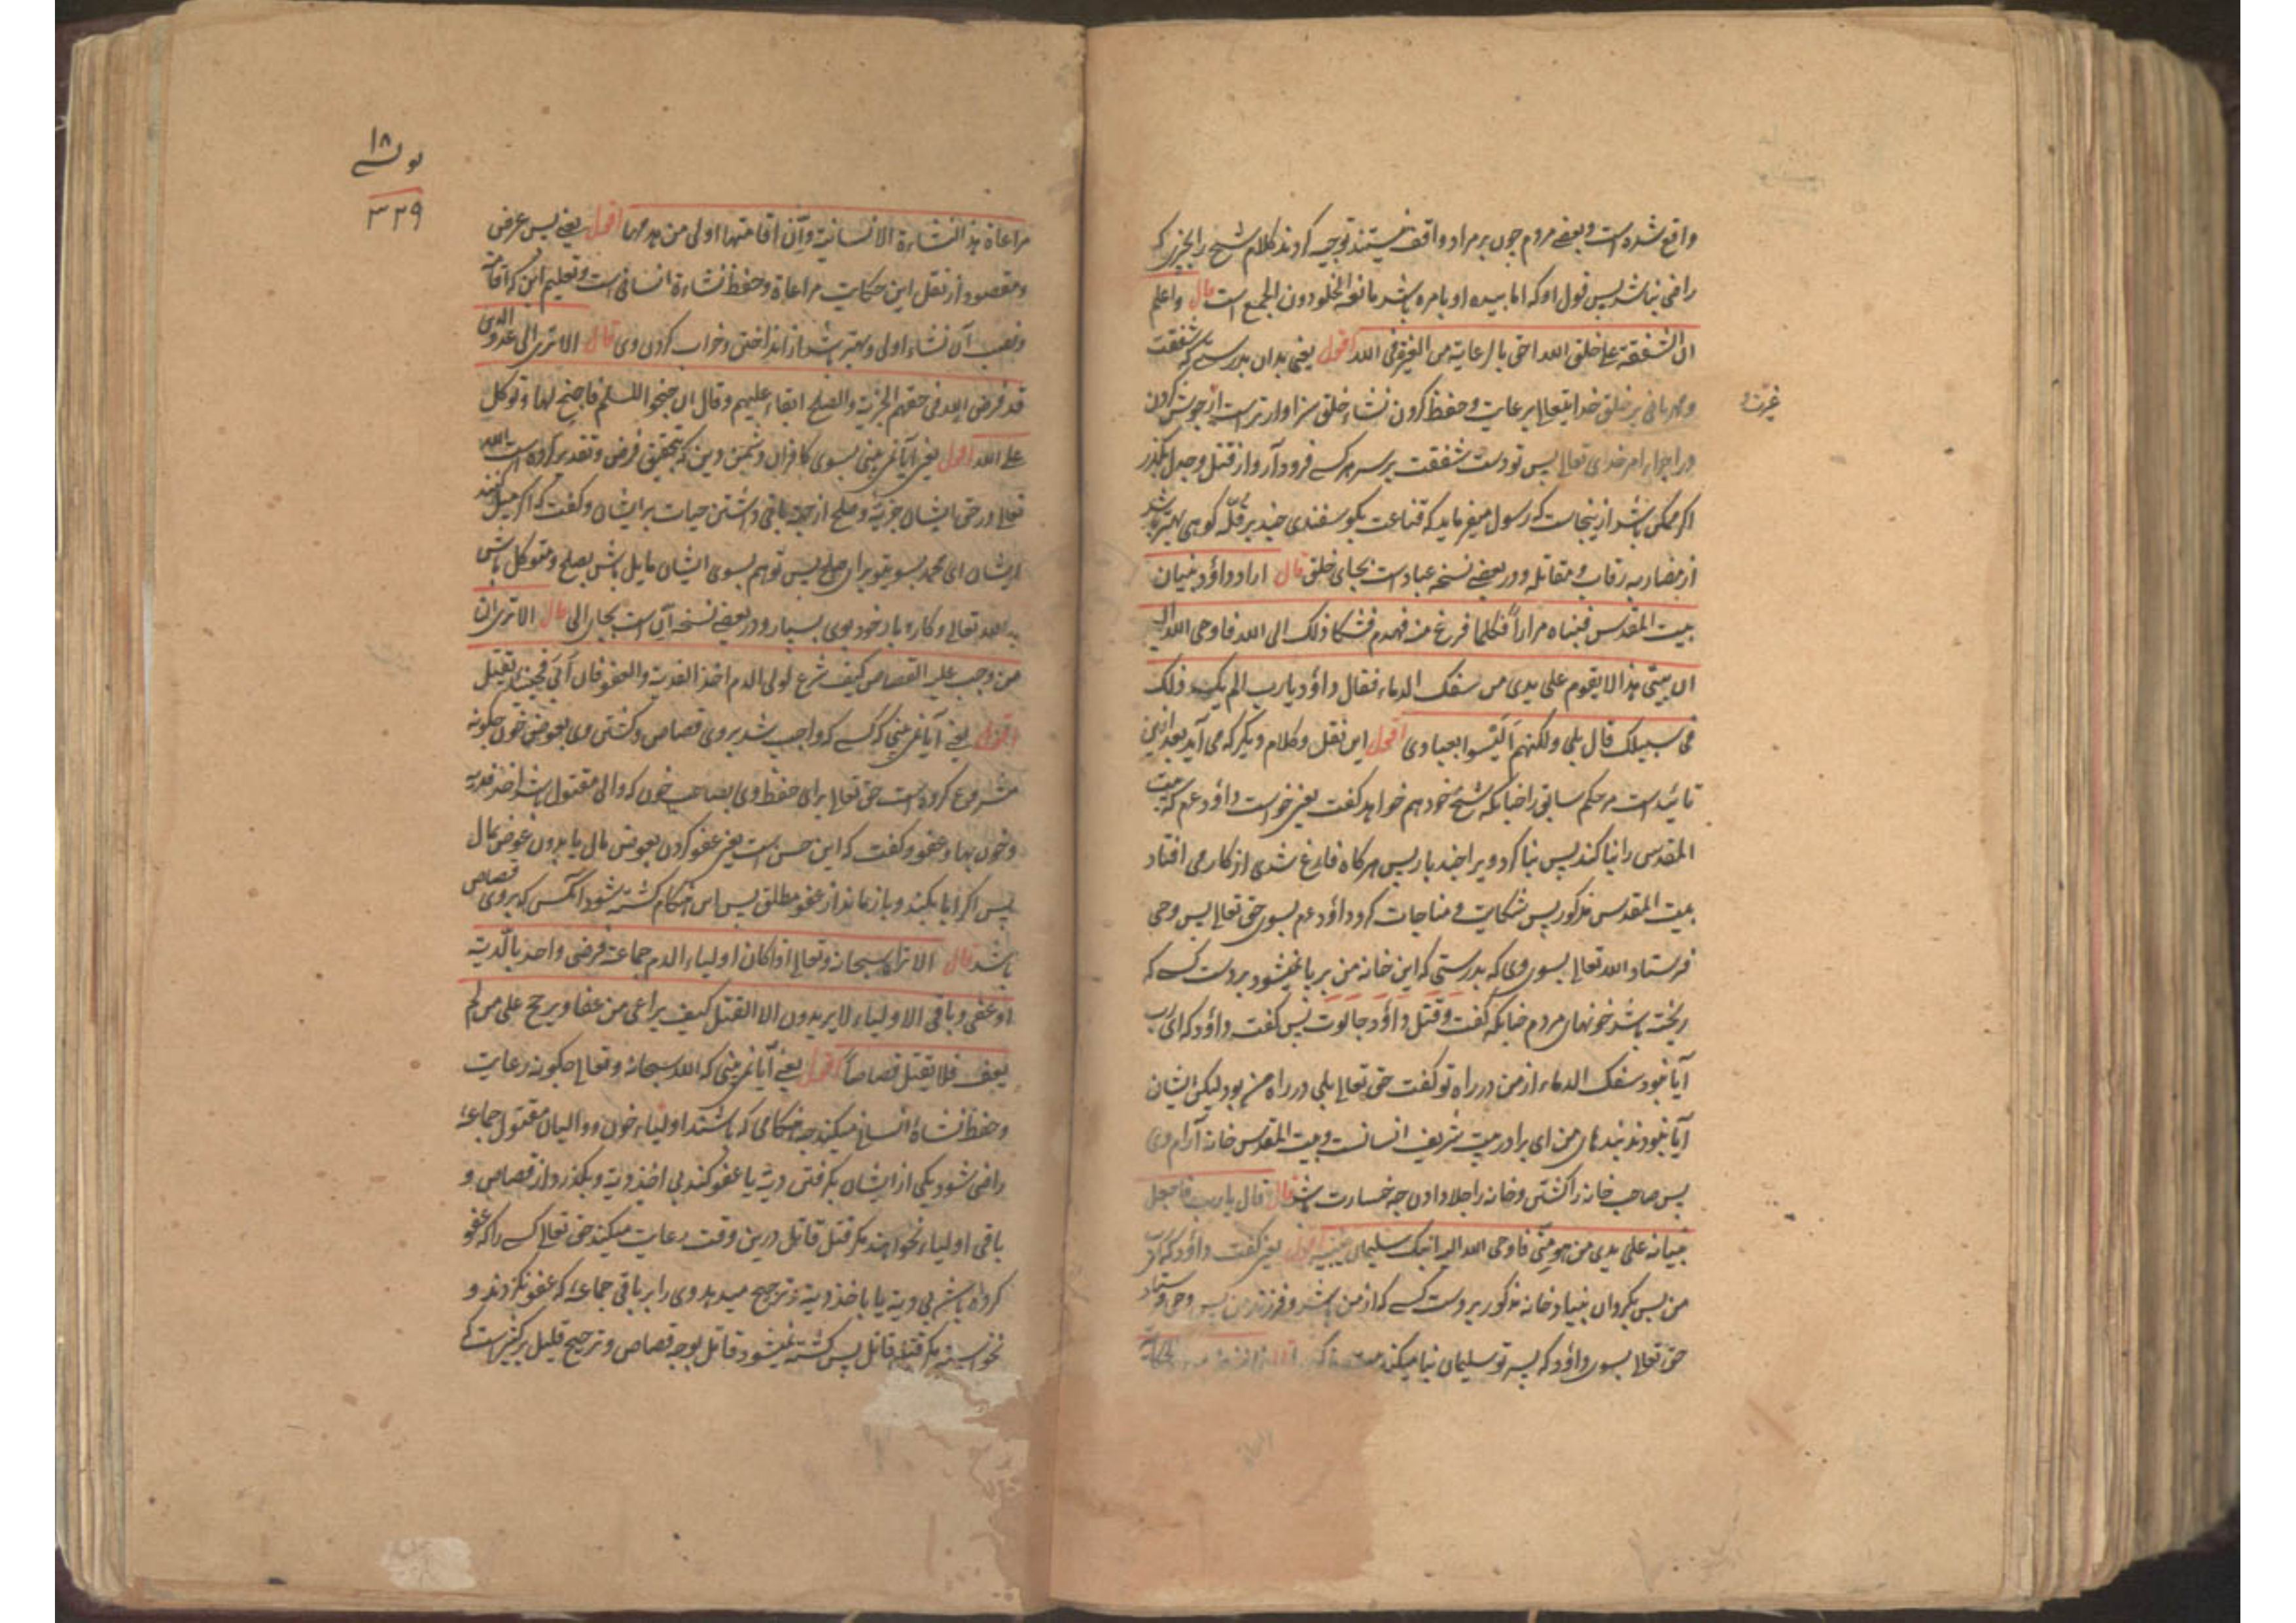 واقع شده است و بعضے مردم چون بر مراد واقف نیستند توجیه کردند کلام شیخ را بچیزی که
راضی نباشد پس قول او که اما بیده او بامره باشد مانعة الخلو دون الجمع است قال واعلم
ان الشفقة علی خلق الله احق بالرعایة من الغیرة فی الله اقول یعنی بدان بدرستی که شفقت
و مهربانی بر خلق خدایتعالے برعایت و حفظ کردن نشاء خلق سزاوارتر است از جوشش کردن
غیرت و
در اجراء امر خدای تعالے پس تو دست شفقت بر سر هر کسے فرود آر و از قتل و جدل بگذر
اگر ممکن باشد ازینجاست که رسول میفرماید که قناعت بکوسفندی چند بر قلّه کوهی بهتر باشد
از مضاربه رقاب و مقاتله و در بعضے نسخه عباد است بجای خلق قال اراد داؤد بنیان
بیت المقدس فبناه مراراً فکلما فرغ منه تهدم فشکا ذلک الی الله فاوحی الله الیه
ان بیتی هذا لا یقوم علی یدی من سفک الدماء فقال داؤد یا رب الم یکن ذلک
فی سبیلک قال بلی ولکنهم الیسوا بعبادی اقول این نقل و کلام دیگر که می آید بعد ازین
تائید است مر حکم سابق را چنانکه شیخ خود هم خواهد گفت یعنی خواست داؤد عم که بیت
المقدس را بنا کند پس بنا کرد ویرا چند بار پس هرکاه فارغ شدی از کار می افتاد
بیت المقدس مذکور پس شکایت و مناجات کرد داؤد عم بسوی حق تعالے پس وحی
فرستاد الله تعالے بسوی وی که بدرستی که این خانه من بر پا نمیشود بر دست کسے که
ریخته باشد خونهای مردم چنانکه گفت و قتل داؤد جالوت پس گفت داؤد که ای رب
آیا نبود سفک الدماء از من در راه تو گفت حق تعالے بلی در راه من بود لیکن ایشان
آیا نبودند بندهای من ای برادر بیت شریف انسانست و بیت المقدس خانه آرام وی
پس صاحب خانه را کشتن و خانه را جلا دادن چه خسارت باشد قال قال یا رب فاجعل
بنیانه علی یدی من هو منّی فاوحی الله الیه ان ابنک سلیمان یبنیه اقول یعنی گفت داؤد که ای رب
من پس بگردان بنیاد خانه مذکور بر دست کسے که از من باشد و فرزند من پس وحی فرستاد
حق تعالے بسوی داؤد که پسر تو سلیمان بنا میکند
۱۸
۳۲۹
مراعاة هذه النشاءة الانسانیة وانّ اقامتها اولی من هدمها اقول یعنے پس غرض
و مقصود از نقل این حکایت مراعاة و حفظ نشاءة انسانی است و تعلیم این که اقامت
و نصب آن نشاء اولی و بهتر باشد از انداختن و خراب کردن وی قال الا تری الی عدو الدین
قد فرض الله فی حقهم الجزیة والصلح ابقاء علیهم وقال ان جنحوا للسلم فاجنح لها وتوکل
علی الله اقول یعنی آیا نمی بینی بسوی کافران و دشمن دین که بتحقیق فرض و تقدیر کرده است الله
تعالے در حق ایشان جزیه و صلح از جهة باقی داشتن حیات بر ایشان و گفت که اگر میل کنند
ایشان ای محمد بسوی تو برای صلح پس تو هم بسوی ایشان مایل باش بصلح و متوکل باش
به الله تعالے و کار و بار خود بوی بسپار و در بعضے نسخه آیا است بجای الی قال الا تری ان
من وجب علیه القصاص کیف شرع لولی الدم اخذ الفدیة والعفو فان ابی فحینئذ یقتل
اقول یعنی آیا نمی بینی که کسے که واجب شد بر وی قصاص و کشتن وی بعوض خون چگونه
مشروع کرده است حق تعالے برای حفظ وی بصاحب خون که والی مقتول باشد اخذ فدیه
و خون بها و عفو و گفت که این حسن است یعنی عفو کردن بعوض مال یا بدون عوض مال
پس اگر ابا بکند و باز ماند از عفو مطلق پس این هنگام کشته شود آنکس که بر وی قصاص
باشد قال الا تراه سبحانه وتعالی اذا کان اولیاء الدم جماعة فرضی واحد بالدیة
او عفی وباقی الاولیاء لا یریدون الا القتل کیف یراعی من عفا ویرجح علی من لم
یعف فلا یقتل قصاصاً اقول یعنے آیا نمی بینی که الله سبحانه و تعالے چگونه رعایت
و حفظ نشاة انسانے میکند هنگامی که باشند اولیاء خون و والیان مقتول جماعة
راضی شود یکی از ایشان بگرفتن دیة یا عفو کند بی اخذ دیة و بگذرد از قصاص و
باقی اولیاء نخواهند مگر قتل قاتل درین وقت رعایت میکند حق تعالے کسے را که عفو
کرده باشد بی دیة یا باخذ دیة و ترجیح میدهد وی را بر باقی جماعة که عفو نکردند و
نخواستند مگر قتل قاتل پس کشته نمیشود قاتل بوجه قصاص و ترجیح قلیل بر کثیر است که